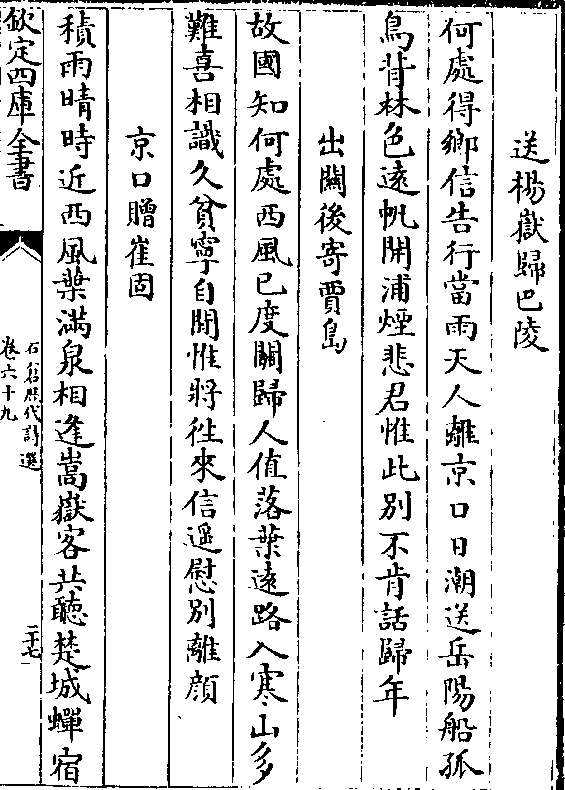 送楊嶽歸巴陵
何處得鄉信告行當雨天人離京口日潮送岳陽船孤
鳥背林色遠帆開浦煙悲君惟此別不肯話歸年
出關後寄賈島
故國知何處西風已度關歸人值落葉遠路入寒山多
難喜相識久貧寧自閒惟將徃來信遥慰別離顔
京口贈崔固
積雨晴時近西風葉滿泉相逢嵩嶽客共聽楚城蟬宿
欽定四庫全書
石倉歷代詩選
卷六十九
二十七